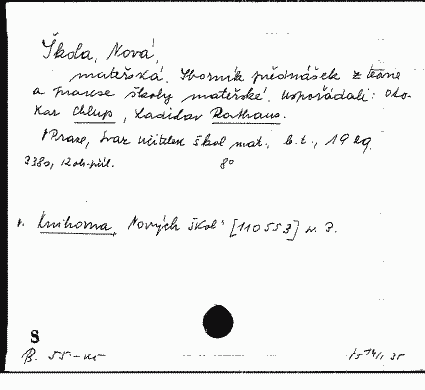 Škola, Nová,
mateřská. Sborník přednášek z teorie
a praxe školy mateřské. Uspořádali: Oto-
kar Chlup, Ladislav Rathaus.
Praze, Svaz učitelek škol mat., b. t., 1929.
338 s, 12 ob. příl. 8°
Knihovna Nových škol [110553] n. 3.
S
B. 55